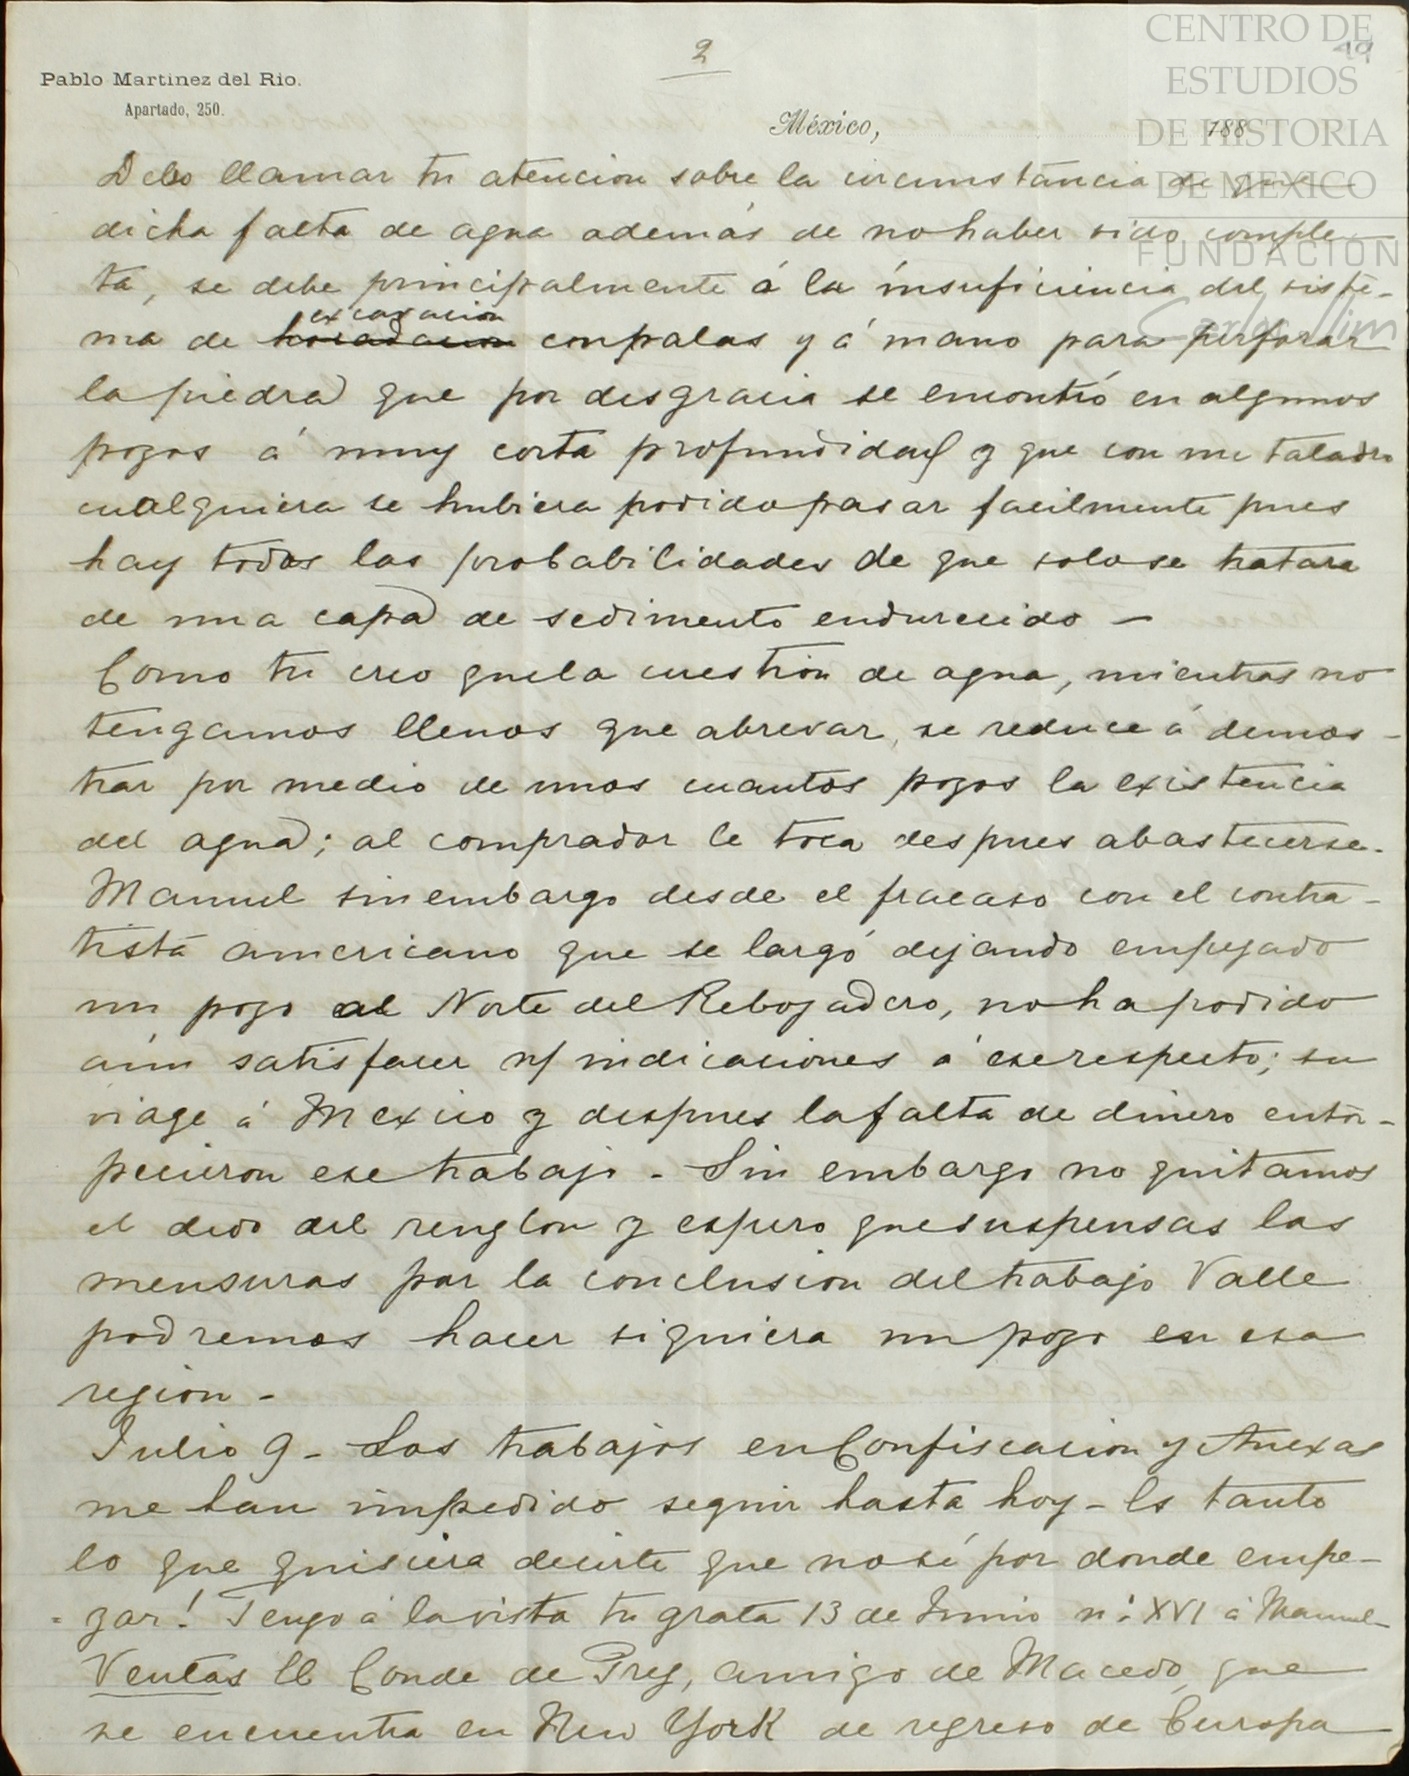 2
49
CENTRO DE
ESTUDIOS
DE HISTORIA
DE MEXICO
FUNDACIÓN
Carlos Slim
Pablo Martinez del Rio.
Apartado, 250.
México, 188
Debo llamar tu atencion sobre la circumstáncia de que
dicha falta de agua además de no haber sido comple-
ta, se debe principalmente á la insuficiencia del siste-
excavacion
ma de horadacion con palas y á mano para perforar
la piedra que por desgracia se encontró en algunos
pozos á muy corta profundidad y que con un taladro
cualquiera se hubiera podido pasar facilmente pues
hay todas las probabilidades de que solo se tratara
de una capa de sedimento endurecido –
Como tu creo que la cuestion de agua, mientras no
tengamos llenos que abrevar, se reduce á demos-
trar por medio de unos cuantos pozos la existencia
del agua; al comprador le toca despues abastecerse.
Manuel sin embargo desde el fracaso con el contra-
tista americano que se largó dejando empezado
un pozo al Norte del Rebozadero, no ha podido
aún satisfacer n/ indicaciones á ese respecto; su
viage á Mexico y despues la falta de dinero entor-
pecieron ese trabajo - Sin embargo no quitamos
el dedo del renglon y espero que suspensas las
mensuras por la conclusion del trabajo Valle
podremos hacer siquiera un pozo en esa
region -
Julio 9 - Los trabajos en Confiscacion y Anexas
me han impedido seguir hasta hoy - Es tanto
lo que quisiera decirte que no sé por donde empe-
- zar! Tengo á la vista tu grata 13 de Junio n: XVI á Manuel
Ventas El Conde de Prey, amigo de Macedo, que
se encuentra en New York de regreso de Europa